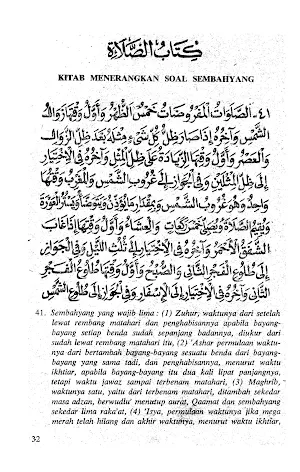 كتاب الصلاة
KITAB MENERANGKAN SOAL SEMBAHYANG
٤١- الصلوات المفروضات خمس الظهر وأول وقتها زوال
الشمس وآخره إذا صار ظل كل شيء مثله بعد ظل الزوال
والعصر وأول وقتها الزيادة على ظل المثل وآخره في الاختيار
إلى ظل المثلين وفي الجواز إلى غروب الشمس والمغرب وقتها
واحد وهو غروب الشمس وبمقدار ما يؤذن ويتوضأ ويستر العورة
ويقيم الصلاة ويصلي خمس ركعات والعشاء وأول وقتها إذا غاب
الشفق الأحمر وآخره في الاختيار إلى ثلث الليل وفي الجواز
إلى طلوع الفجر الثاني والصبح وأول وقتها طلوع الفجر
الثاني وآخره في الاختيار إلى الإسفار وفي الجواز إلى طلوع الشمس
41. Sembahyang yang wajib lima : (1) Zuhur, waktunya dari setelah
lewat rembang matahari dan penghabisannya apabila bayang-
bayang setiap benda sudah sepanjang badannya, diukur dari
sudah lewat rembang matahari itu, (2) 'Ashar permulaan waktu-
nya dari bertambah bayang-bayang sesuatu benda dari bayang-
bayang yang sama tadi, dan penghabisannya, menurut waktu
ikhtiar, apabila bayang-bayang itu dua kali lipat panjangnya,
tetapi waktu jawaz sampai terbenam matahari, (3) Maghrib,
waktunya satu, yaitu dari terbenam matahari, ditambah sekedar
masa adzan, berwudlu' menutup aurat, Qaamat dan sembahyang
sekedar lima raka'at, (4) 'Isya, permulaan waktunya jika mega
merah telah hilang dan akhir waktunya, menurut waktu ikhtiar,
32